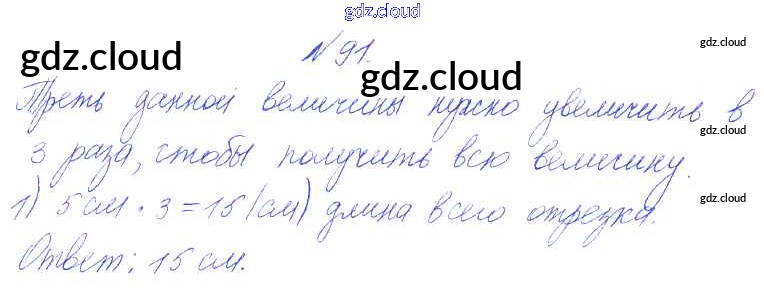 gdz.cloud
№ 91.
gdz.cloud
gdz.cloud
gdz.cloud
Треть данной величины нужно увеличить в
gdz.cloud
3 раза, чтобы получить всю величину.
1) 5 см · 3 = 15 (см) длина всего отрезка.
gdz.cloud
Ответ: 15 см.
gdz.cloud
gdz.cloud